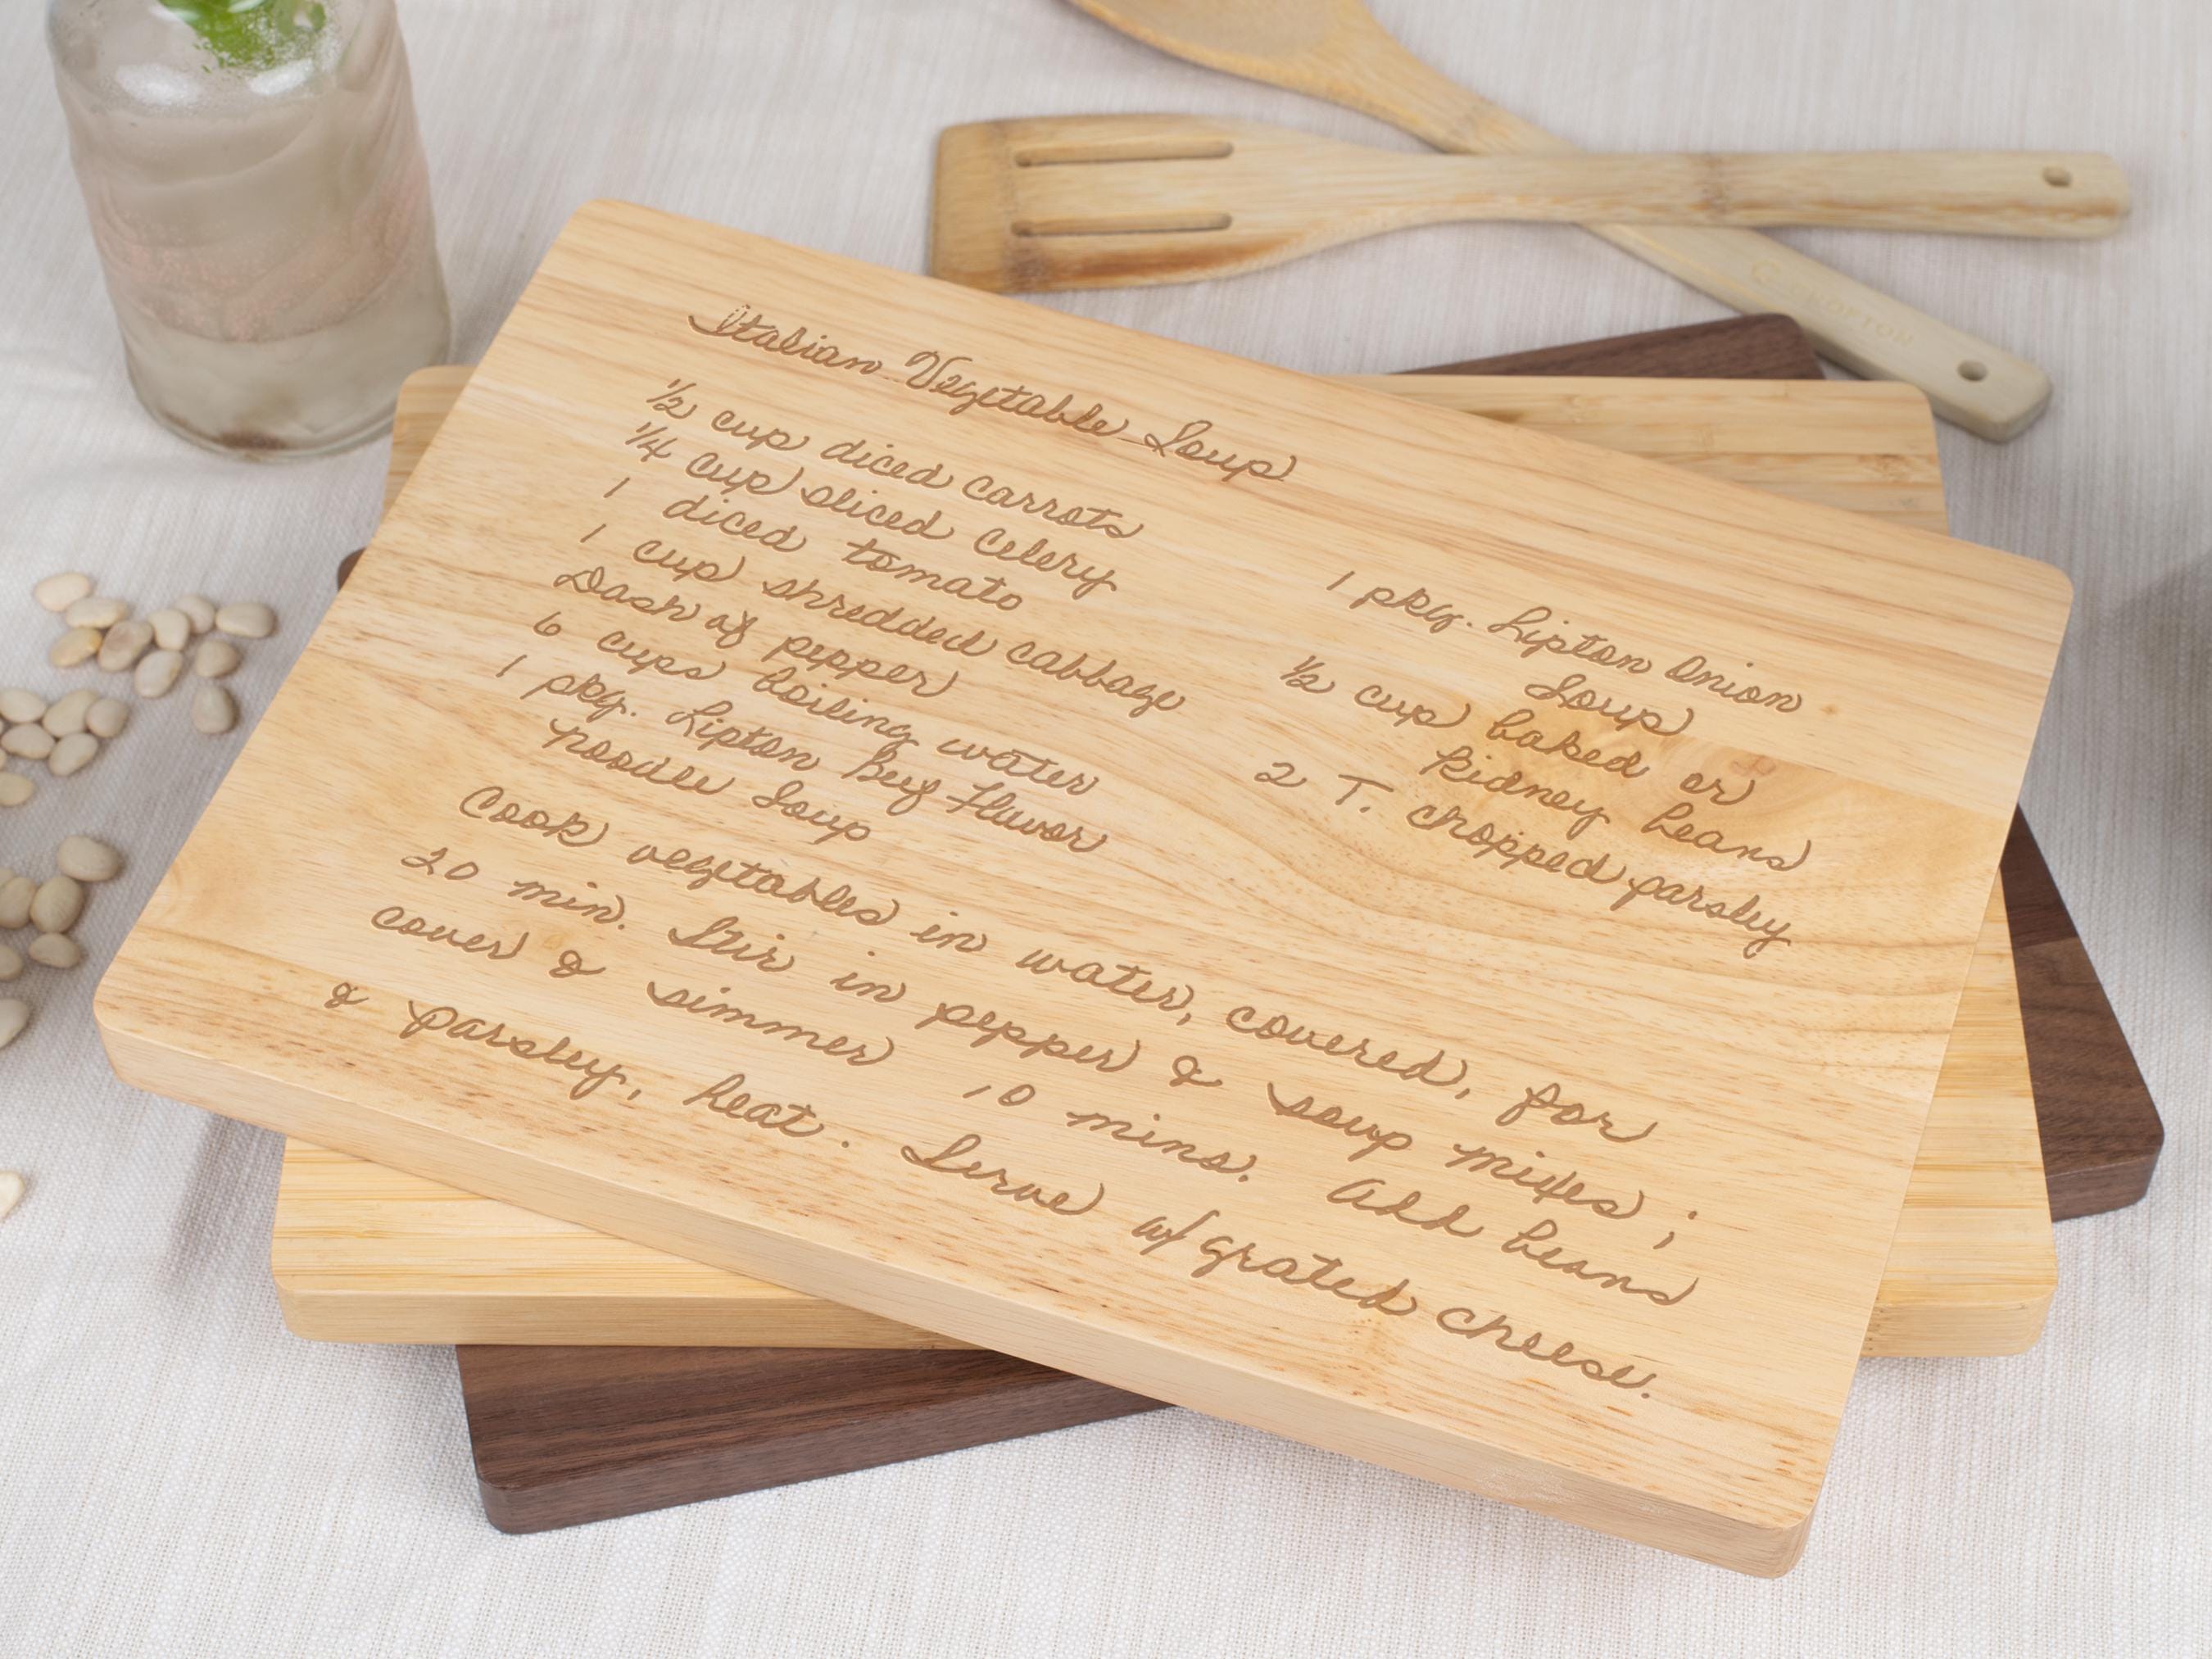 Italian Vegetable Soup
1/2 cup diced carrots
1/4 cup sliced celery
1 diced tomato
1 cup shredded cabbage
Dash of pepper
6 cups boiling water
1 pkg. Lipton Beef Flavor
Noodle Soup
1 pkg. Lipton Onion
Soup
1/2 cup baked or
kidney beans
2 T. chopped parsley
Cook vegetables in water, covered, for
20 min. Stir in pepper & soup mixes;
cover & simmer 10 mins. Add beans
& parsley, heat. Serve w/ grated cheese.